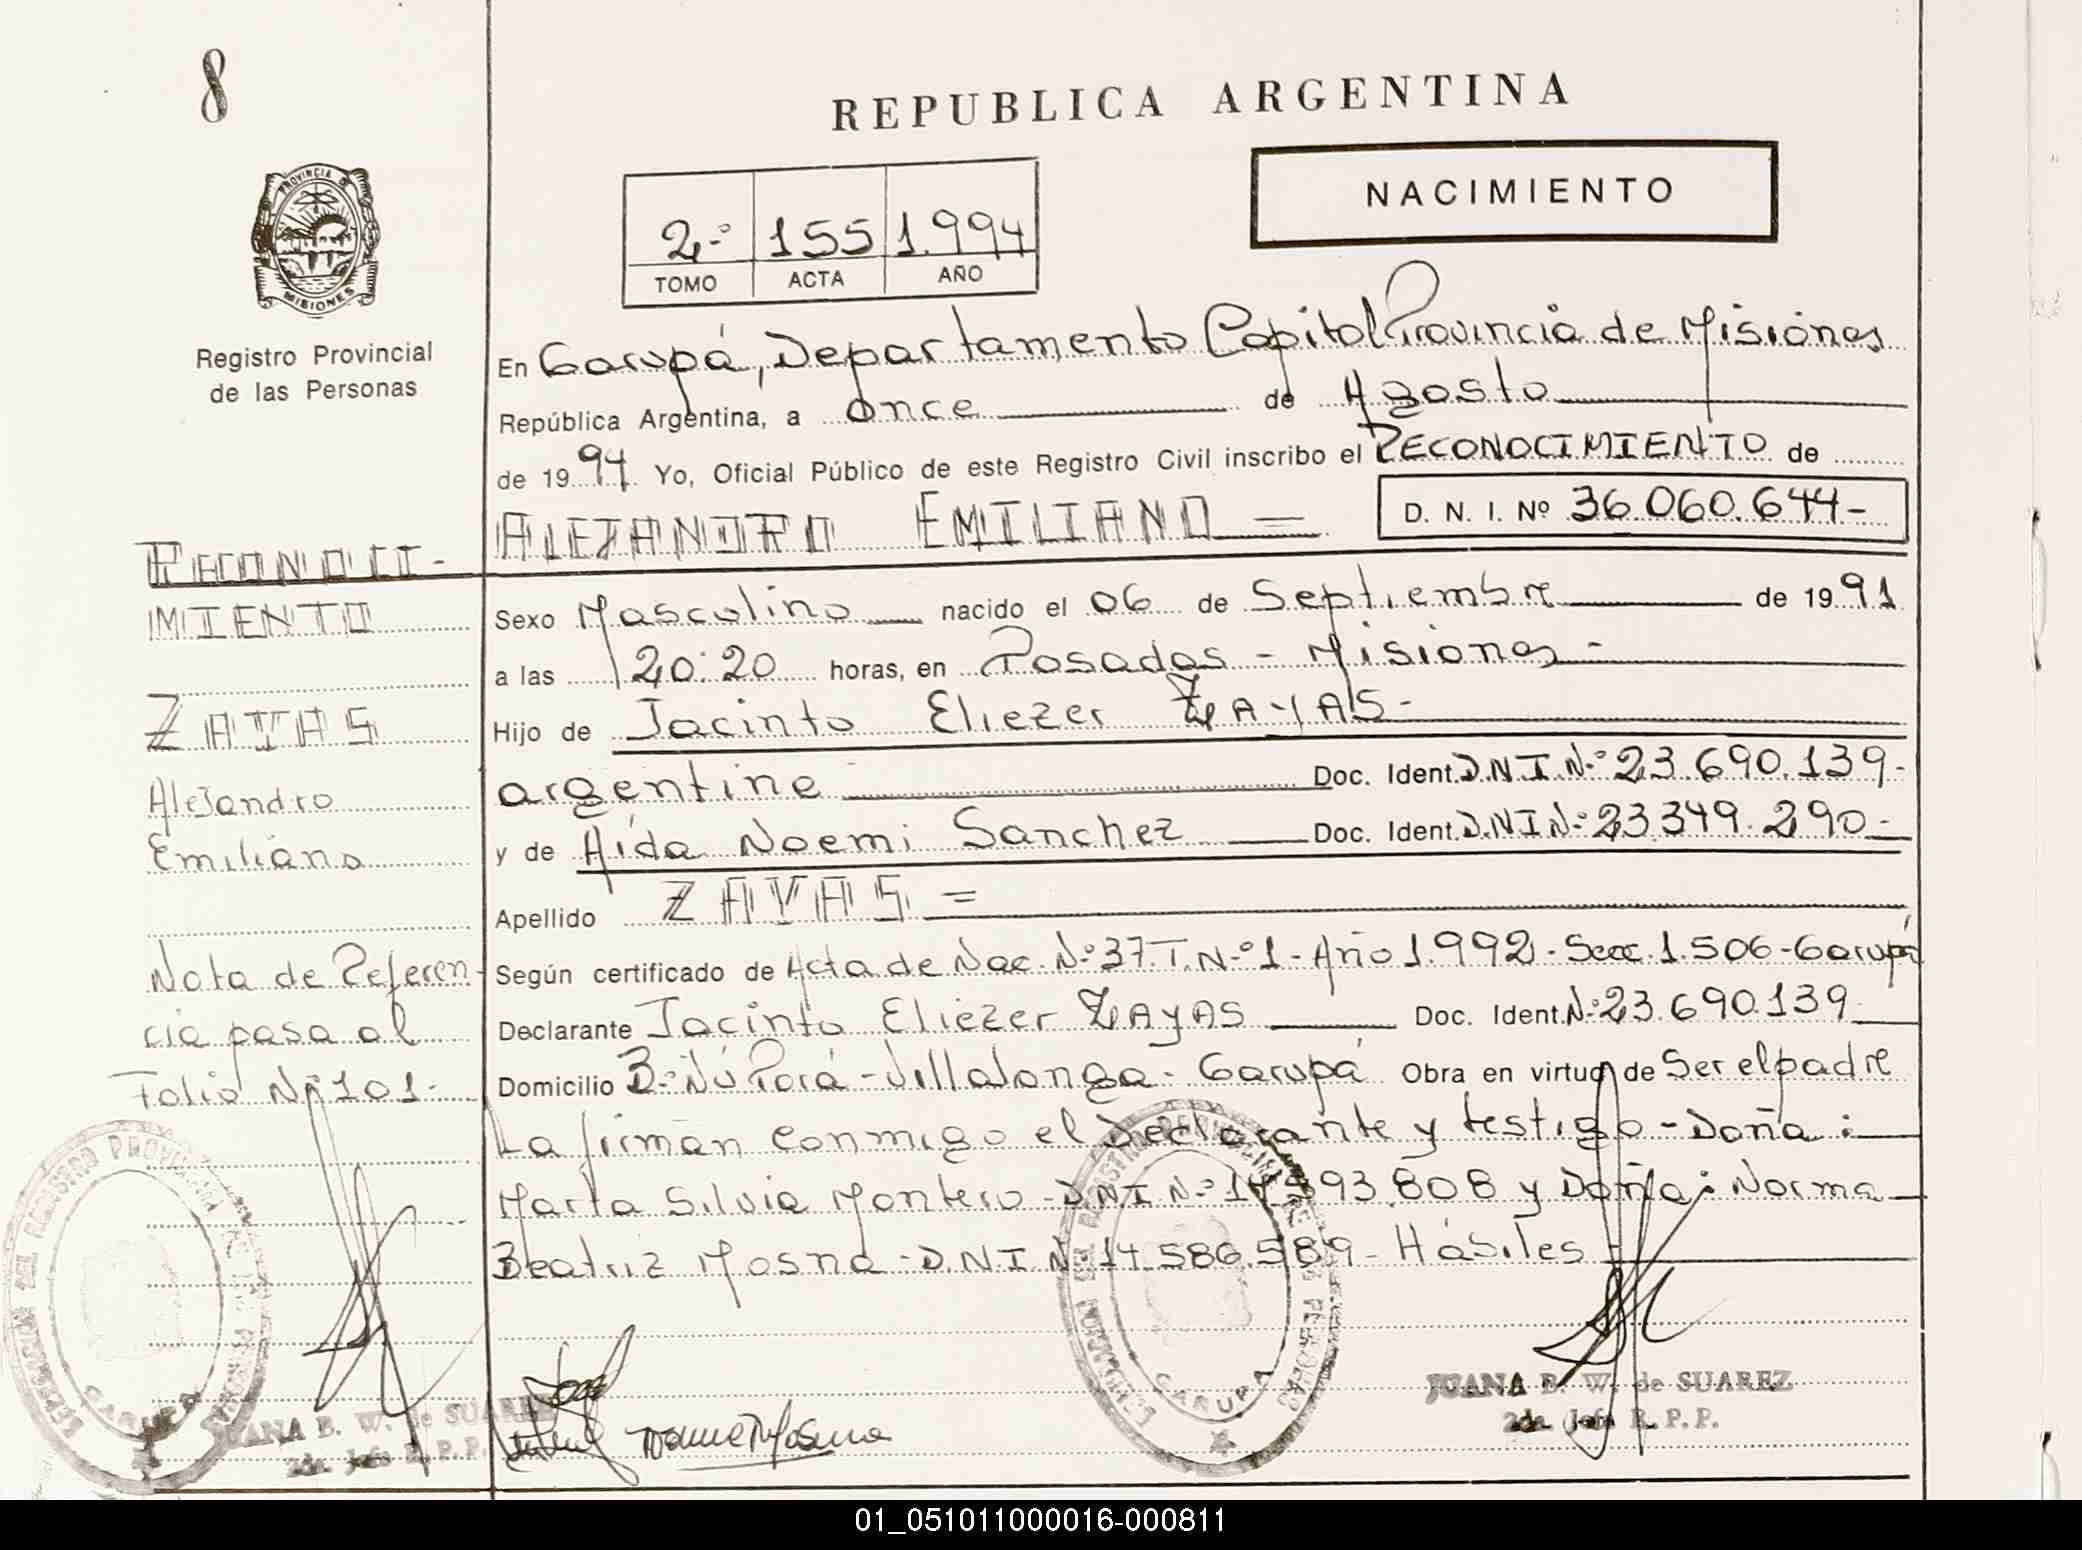 8
REPUBLICA ARGENTINA
NACIMIENTO
2º 155 1.994
TOMO ACTA AÑO
PROVINCIA DE
MISIONES
Registro Provincial
de las Personas
En Garupá, Departamento Capital Provincia de Misiones
República Argentina, a once de Agosto
de 1994. Yo, Oficial Público de este Registro Civil inscribo el RECONOCIMIENTO de
ALEJANDRO EMILIANO = D. N. I. Nº 36.060.644-
Sexo Masculino nacido el 06 de Septiembre de 1991
a las 20:20 horas, en Posadas - Misiones -
Hijo de Jacinto Eliezer ZAYAS -
argentino Doc. Ident. D.N.I.Nº 23.690.139-
y de Aída Noemi Sanchez Doc. Ident. D.N.I.Nº 23.349.290-
Apellido ZAYAS =
Según certificado de Acta de Nac. Nº 37. T. Nº 1 - Año 1.992 - Secc. 1.506 - Garupá
Declarante Jacinto Eliezer ZAyAS Doc. Ident. Nº 23.690.139
Domicilio Bº Ñú Porá - Villalonga - Garupá Obra en virtud de Ser el padre
La firman conmigo el Declarante y testigo - Doña:
Marta Silvia Montero - D.N.I.Nº 893.808 y Doña: Norma
Beatriz Mosna - D.N.I.Nº 14.586.589 - Hábiles
RECONOCI-
MIENTO
ZAYAS
Alejandro
Emiliano
Nota de Referen-
cia pasa al
Folio Nº 101-
DELEGACION DEL REGISTRO PROVINCIAL DE LAS PERSONAS
GARUPA
JUANA B. W. de SUAREZ
2da. Jefe R.P.P.
DELEGACION DEL REGISTRO PROVINCIAL DE LAS PERSONAS
GARUPA
JUANA B. W. de SUAREZ
2da. Jefe R. P. P.
01_051011000016-000811